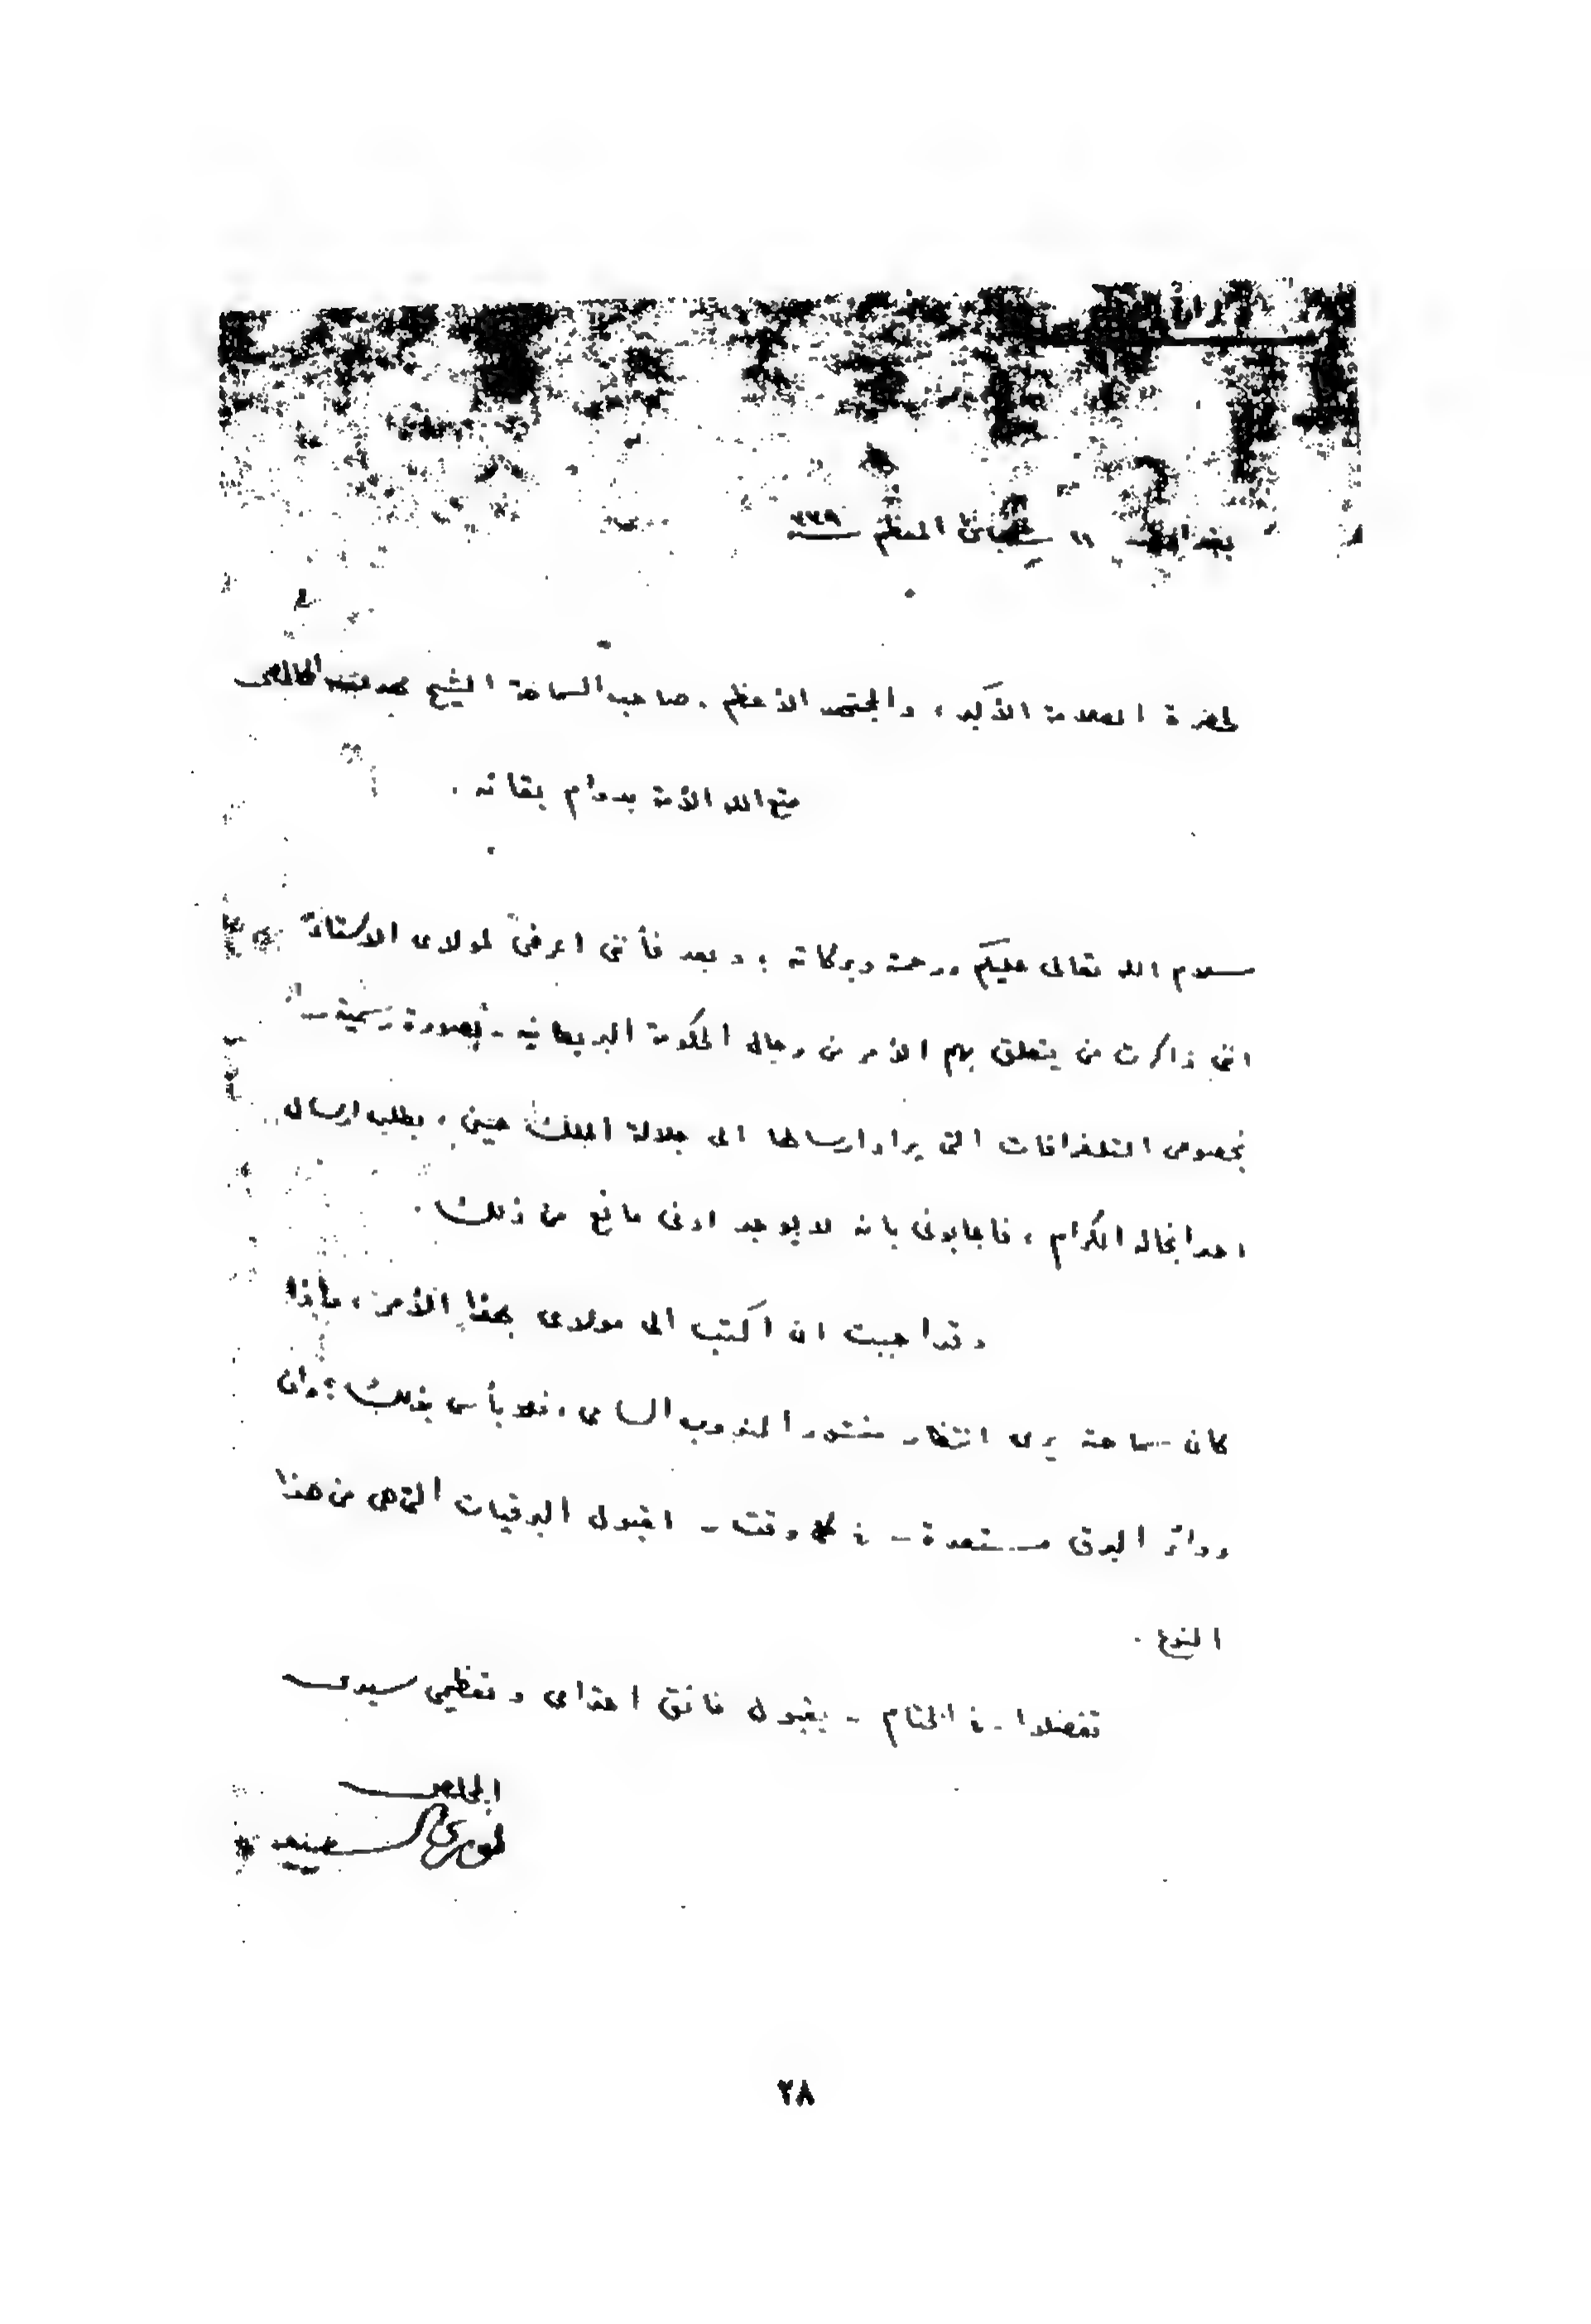 بغداد ١١ شعبان المعظم ٣٣٩
لحضرة العلامة الأكبر، والمجتهد الأعظم، صاحب السماحة الشيخ محمد مهدي الخالصي
متع الله الأمة بدوام بقائه.
سلام الله تعالى عليكم ورحمة وبركاته؛ وبعد فأنني اعرض لمولاي الاستاذ
انني ذاكرت من يتعلق بهم الأمر من رجال الحكومة البريطانية - بصورة رسمية -
بخصوص التلغرافات التي يراد ارسالها الى جلالة الملك حسين، بطلب ارسال
احد انجاله الكرام، فاجابوني بانه لا يوجد ادنى مانع من ذلك.
وقد احببت ان اكتب الى مولاي بهذا الأمر، فإذا
كان سماحته يرى انتظار منشور المندوب السامي، فلا بأس بذلك؛ وان
دوائر البرق مستعدة - في كل وقت - لقبول البرقيات التي هي من هذا
النوع.
تفضلوا - في الختام - بقبول فائق احترامي وتعظيمي سيدي
المخلص
نوري السعيد
٢٨